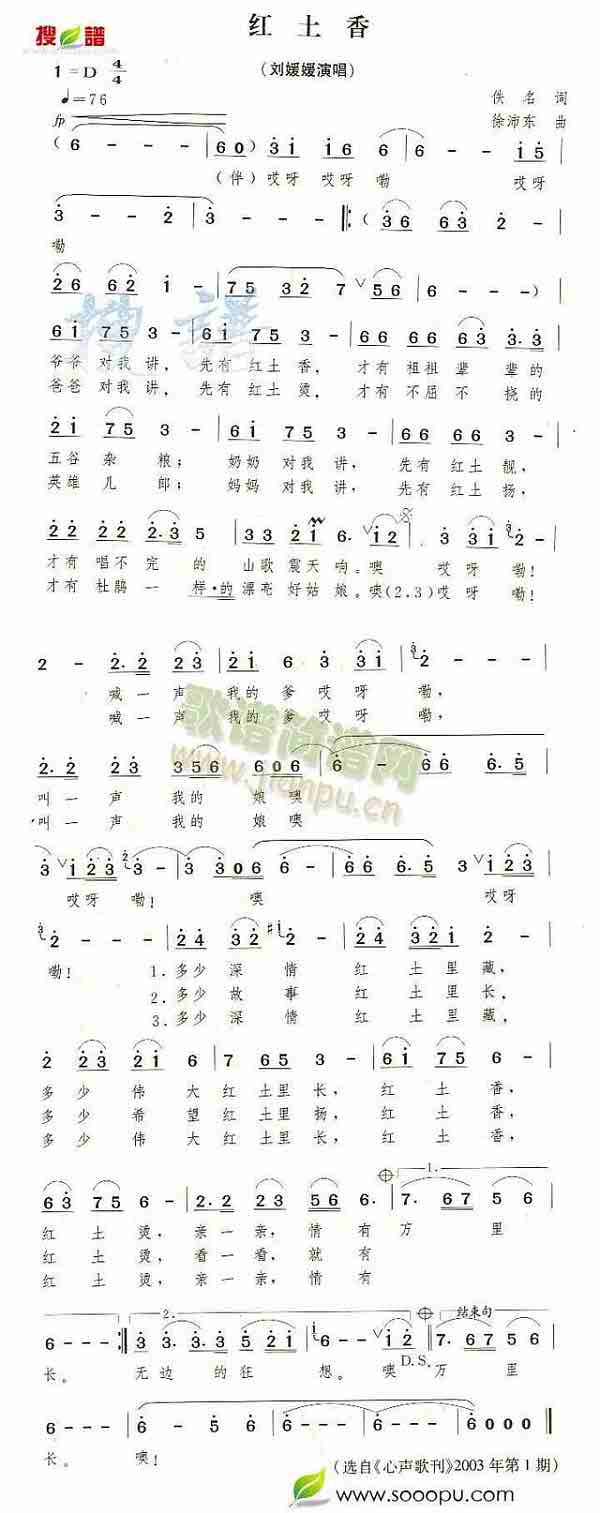 搜谱
红土香
1=D 4/4
(刘媛媛演唱)
♩=76
佚名 词
徐沛东 曲
fp
(6 - - - | 6 0) 3 1 1 6 6 | 6 - - 1 5 |
(伴)哎呀 哎呀 嘞 哎呀
3 - - 2 | 3 - - - ‖: (3 6 6 3 2 - |
嘞
2 6 6 2 1 - | 7 5 3 2 7 ∨ 5 6 | 6 - - -) |
6 1 7 5 3 - | 6 1 7 5 3 - | 6 6 6 6 6 3 3. 3 |
爷爷 对我 讲, 先有 红土 香, 才有 祖祖 辈 辈的
爸爸 对我 讲, 先有 红土 烫, 才有 不屈 不 挠的
2 1 7 5 3 - | 6 1 7 5 3 - | 6 6 6 6 2 3 |
五谷 杂 粮; 奶奶 对我 讲, 先有 红土 靓,
英雄 儿 郎; 妈妈 对我 讲, 先有 红土 扬,
2 2 2 2 2. 3 5 | 3 3 2 1 6. ∨ 1 2 | 3 3 1 2 |
才有 唱不 完 的 山歌 震天 响。噢 哎 呀 嘞!
才有 杜鹃 一 样·的 漂亮 好姑 娘。噢(2.3)哎 呀 嘞!
2 - 2. 2 2 3 | 2 1 6 3 3 1 | 2 - - - |
喊一 声 我的 爹 哎呀 嘞,
喊一 声 我的 爹 哎呀 嘞,
歌谱简谱网
www.jianpu.cn
2. 2 2 3 3 5 6 6 0 6 | 6 - 6 6 6. 5 |
叫一 声 我的 娘 噢
叫一 声 我的 娘 噢
3 ∨ 1 2 3 3 - | 3 3 0 6 6 - | 6 6 6. 5 3 ∨ 1 2 3 |
哎呀 嘞! 噢 哎呀
2 - - - | 2 4 3 2 1 - | 2 4 3 2 1 2 - |
嘞! 1.多少 深 情 红 土里 藏,
2.多少 故 事 红 土里 长,
3.多少 深 情 红 土里 藏,
2 2 3 2 1 6 | 7 6 5 3 - | 6 1 7 5 6 - |
多 少 伟 大 红 土里 长, 红 土 香,
多 少 希 望 红 土里 扬, 红 土 香,
多 少 伟 大 红 土里 长, 红 土 香,
6 3 7 5 6 - | 2. 2 2 3 5 6 6. | 1. 7. 6 7 5 6 |
红 土 烫, 亲一 亲, 情 有 万 里
红 土 烫, 看一 看, 就 有
红 土 烫, 亲一 亲, 情 有
2. 结束句
6 - - - :‖ 3 3. 3 3. 5 2 1 | 6 - - - | 6 - - 1 2 ‖ 7. 6 7 5 6 |
长。 无边 的狂 想。 噢 D.S. 万 里
6 - - - | 6 - 5 - | 6 - - - | 6 - - - | 6 0 0 0 ‖
长。 噢!
(选自《心声歌刊》2003年第1期)
www.sooopu.com